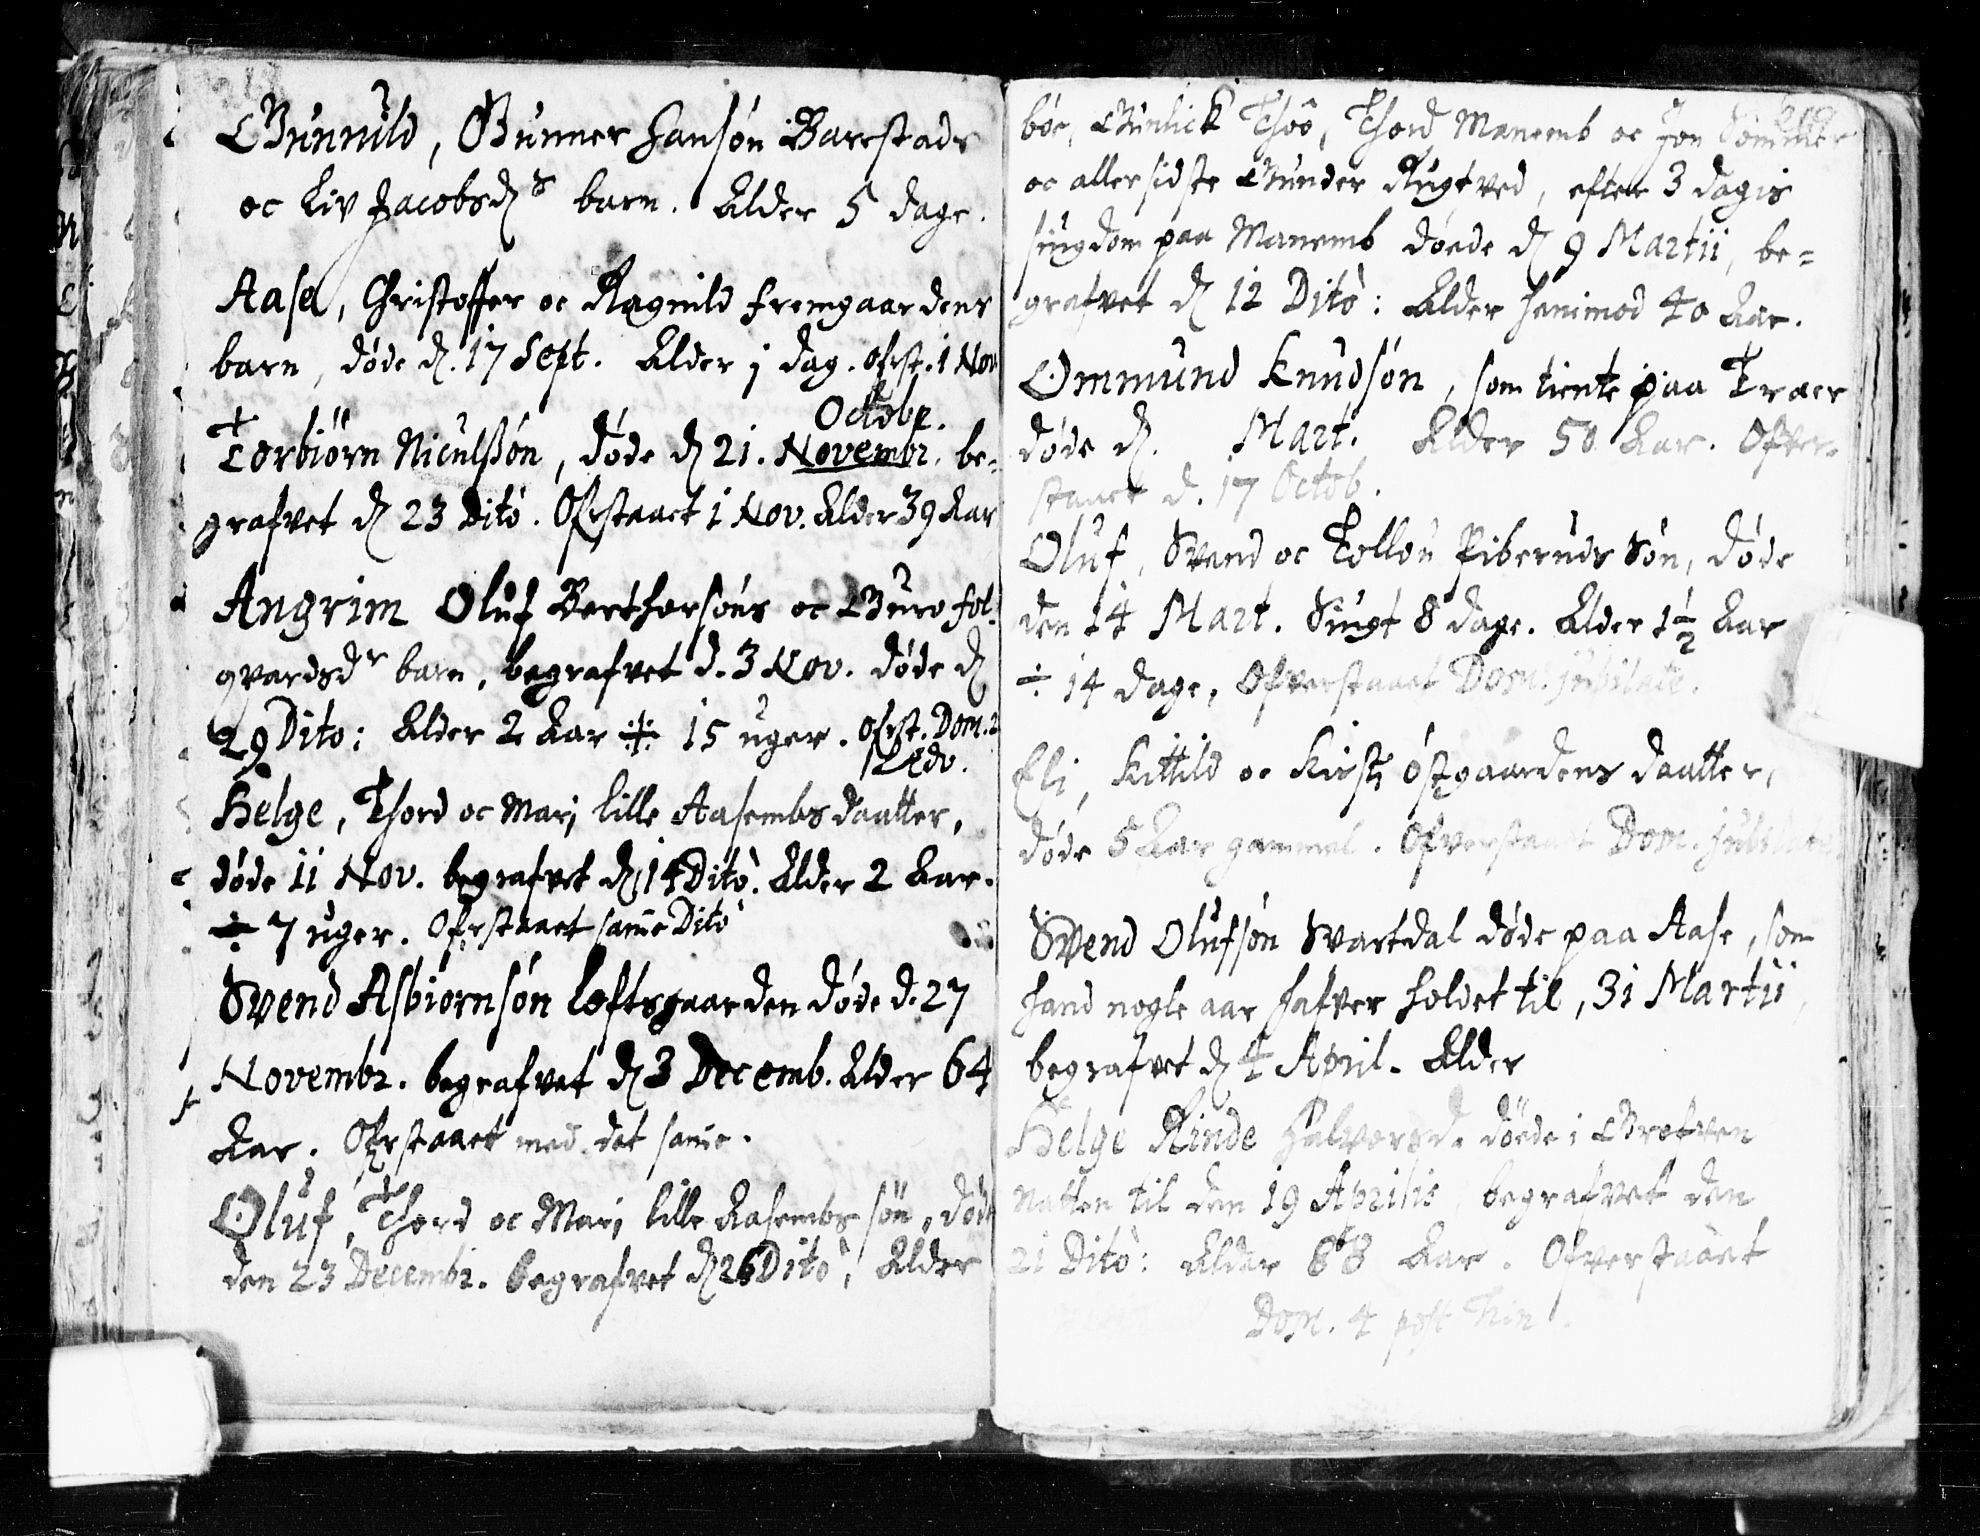 Gunnild, Gunner Hansøn Barstads
oc Liv Jacobsdʳˢ barn. Alder 5 dage.
Aase, Christoffer oc Ragnild Fremgaardens
barn, døde d. 17 Sept. Alder 1 dag. Ofrst. 1 Nov
Octobr.
Torbiørn Niculssøn, døde d 21. Novembr. be=
grafvet d 23 Dito. Ofrstaaet 1 Nov. Alder 39 Aar
Angrim Oluf Berthorsøns oc Guro Fol=
qvardsdʳ barn, begrafvet d. 3 Nov. døde d
29 Dito: Alder 2 Aar ÷ 15 uger. Ofrst. Dom. 2
Adv.
Helge, Thord oc Mari lille Aasembs daatter,
døde 11 Nov. begrafvet d 14 Dito. Alder 2 Aar.
÷ 7 uger. Ofrstaaet samme Dito
Svend Asbiørnsøn Loftsgaarden døde d. 27
Novembr. begrafvet d 3 Decemb. Alder 64
Aar. Ofrstaaet med det samme.
Oluf, Thord oc Mari lille Aasembs søn, døde
den 23 Decembr. begrafvet d 26 Dito, Alder
bøe, Gunlick Thoo, Thord Manemb oc Jon Sommer
oc allersidste Gunder Rugtved, efter 3 dagis
siugdom paa Manemb døede d 9 Martii, be=
grafvet d 12 Dito: Alder henimod 40 Aar.
Ommund Knudsøn, som tiente paa Træer
døde d. Mart. Alder 50 Aar. Ofver=
staaet d. 17 Octob.
Oluf, Svend oc Tollou Piberuds Søn, døde
den 14 Mart. Siugt 8 dage. Alder 1½ Aar
÷ 14 dage, Ofverstaaet Dom. jubilate.
Eli, Kittild oc Kirsti Østgaardens daatter,
døde 5 Aar gammel. Ofverstaaet Dom. jubilate
Svend Olufsøn Svartdal døde paa Aase, som
hand nogle aar hafver holdet til, 31 Martii,
begrafvet d 4 April. Alder
Helge Rinde Halvorsd. døede i Grefven
Natten til den 19 Aprilis, begrafvet den
21 Dito: Alder 88 Aar. Ofverstaaet
Dom. 4 post Trin.